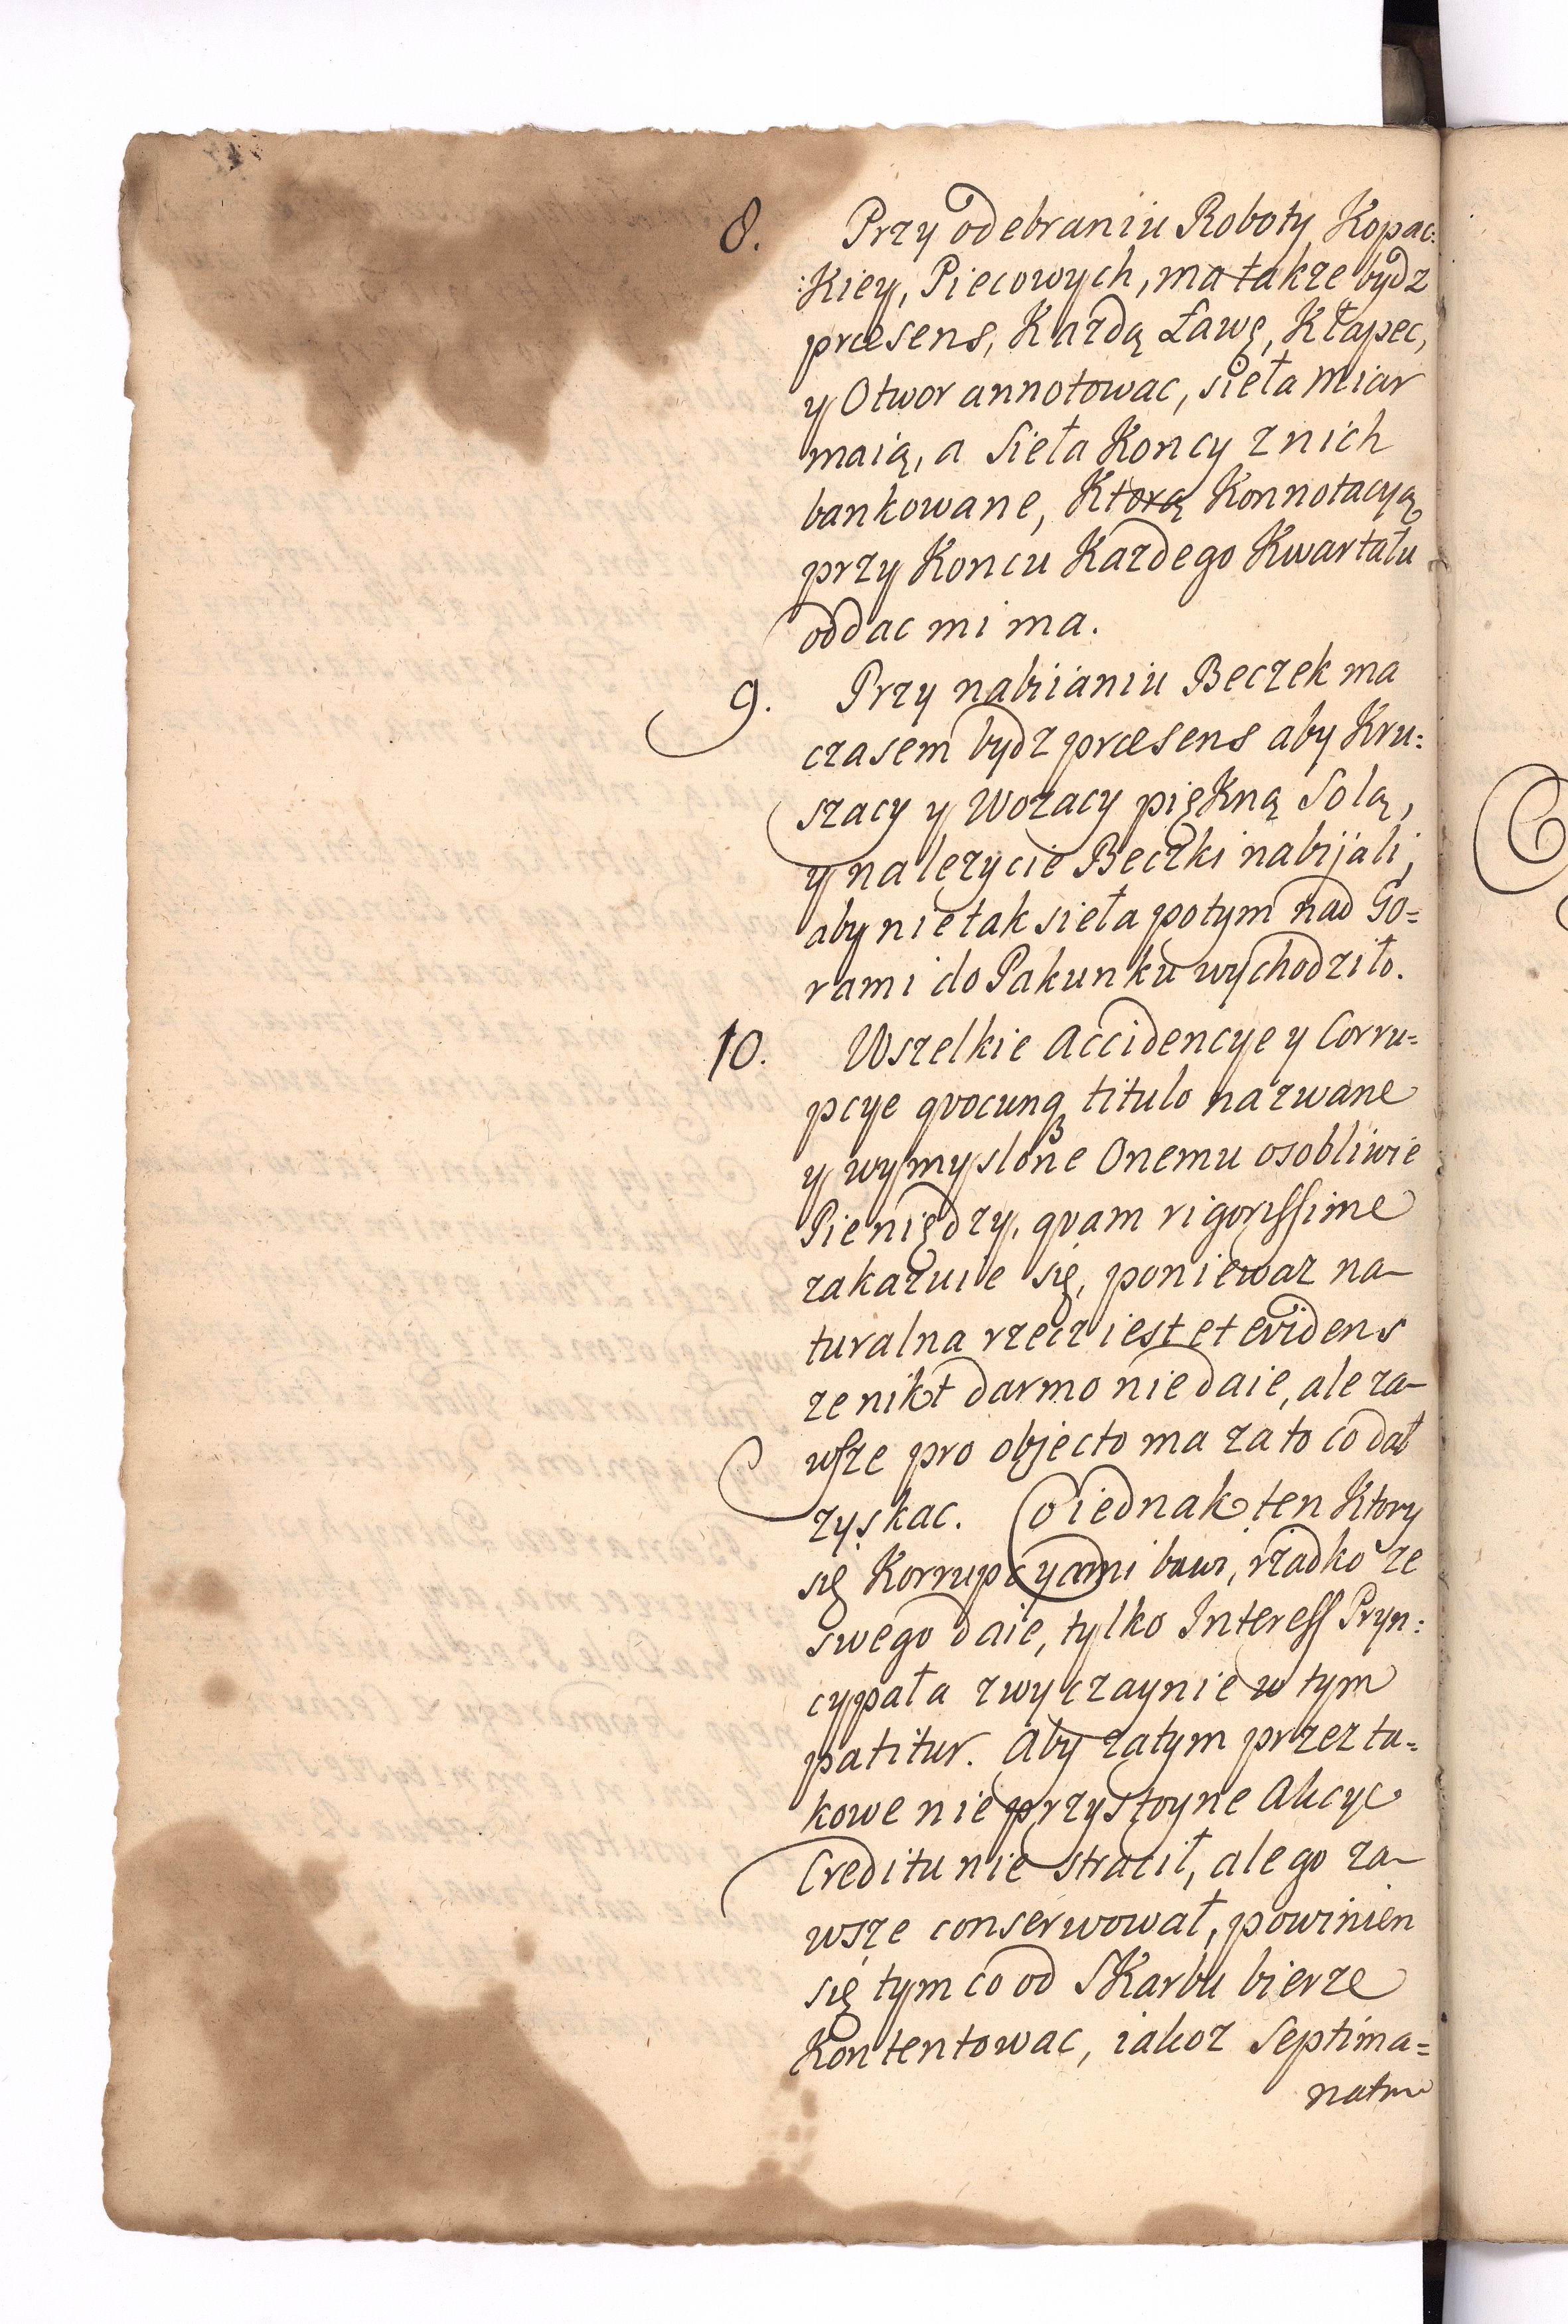 8. Przy odebraniu Roboty Kopac:
:Kiey, Piecowych, ma także bydz
præsens, Kazdą Ławę, Kłapec,
y Otwor annotowac, sieła miar
maią, a sieła Koncy z nich
bankowane, Ktorą Konnotacyą
przy Koncu Kazdego Kwartału
oddac mi ma.
9. Przy nabiianiu Beczek ma
czasem bydz præsens aby Kru:
szacy y Wozacy piękną Solą,
y nalezycie Beczki nabijali,
aby nie tak sieła potym nad Go=
rami do Pakunku wychodziło.
10. Wszelkie Accidencye y Corru=
pcye qvocunqꝫ titulo nazwane
y wymyslone Onemu osobliwie
Pieniędzy, qvam rigorissime
zakazuie się, poniewaz na-
turalna rzecz iest et evidens
ze nikt darmo nie daie, ale za-
wsze pro objecto ma za to co dał
zyskac. Co iednak ten Ktory
się Korrupcyami bawi, rzadko ze
swego daie, tylko Interess Pryn:
cypała zwyczaynie w tym
patitur. Aby zatym przez ta=
kowe nieprzystoyne Akcye
Creditu nie stracił, ale go za-
wsze conserwował, powinien
się tym co od SKarbu bierze
Kontentowac, iakoz Septima=